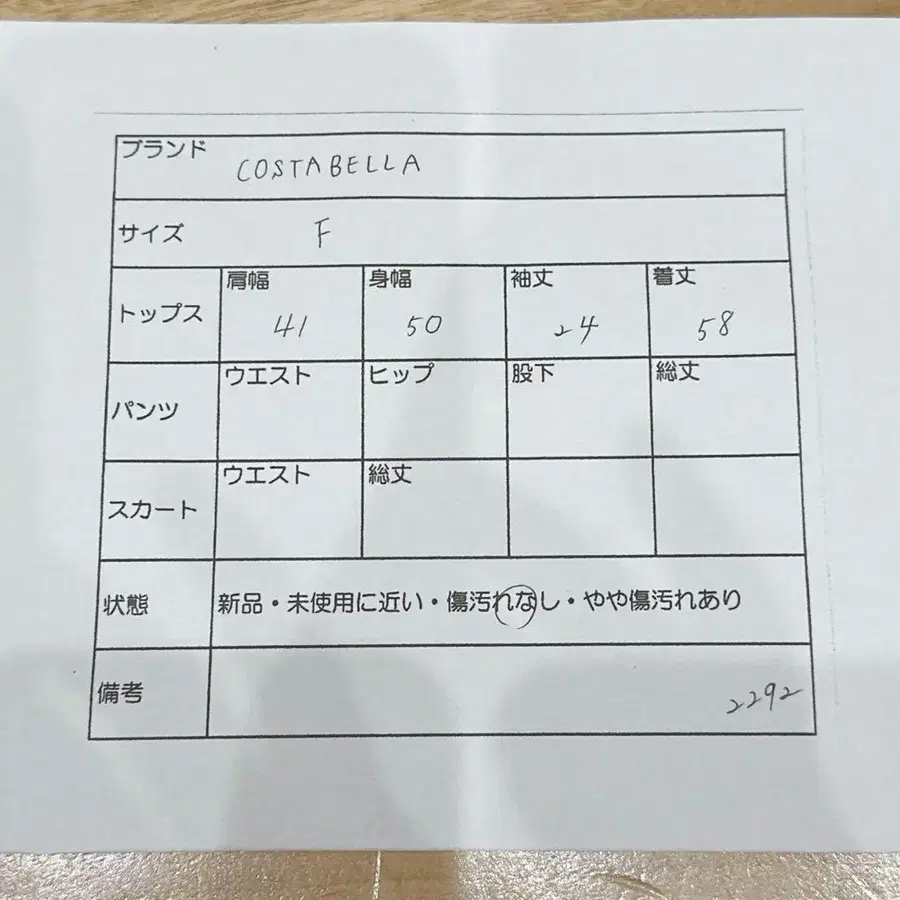 ブランド COSTABELLA
サイズ F
トップス 肩幅 41 身幅 50 袖丈 24 着丈 58
パンツ ウエスト ヒップ 股下 総丈
スカート ウエスト 総丈
状態 新品・未使用に近い・傷汚れなし・やや傷汚れあり
備考 2292